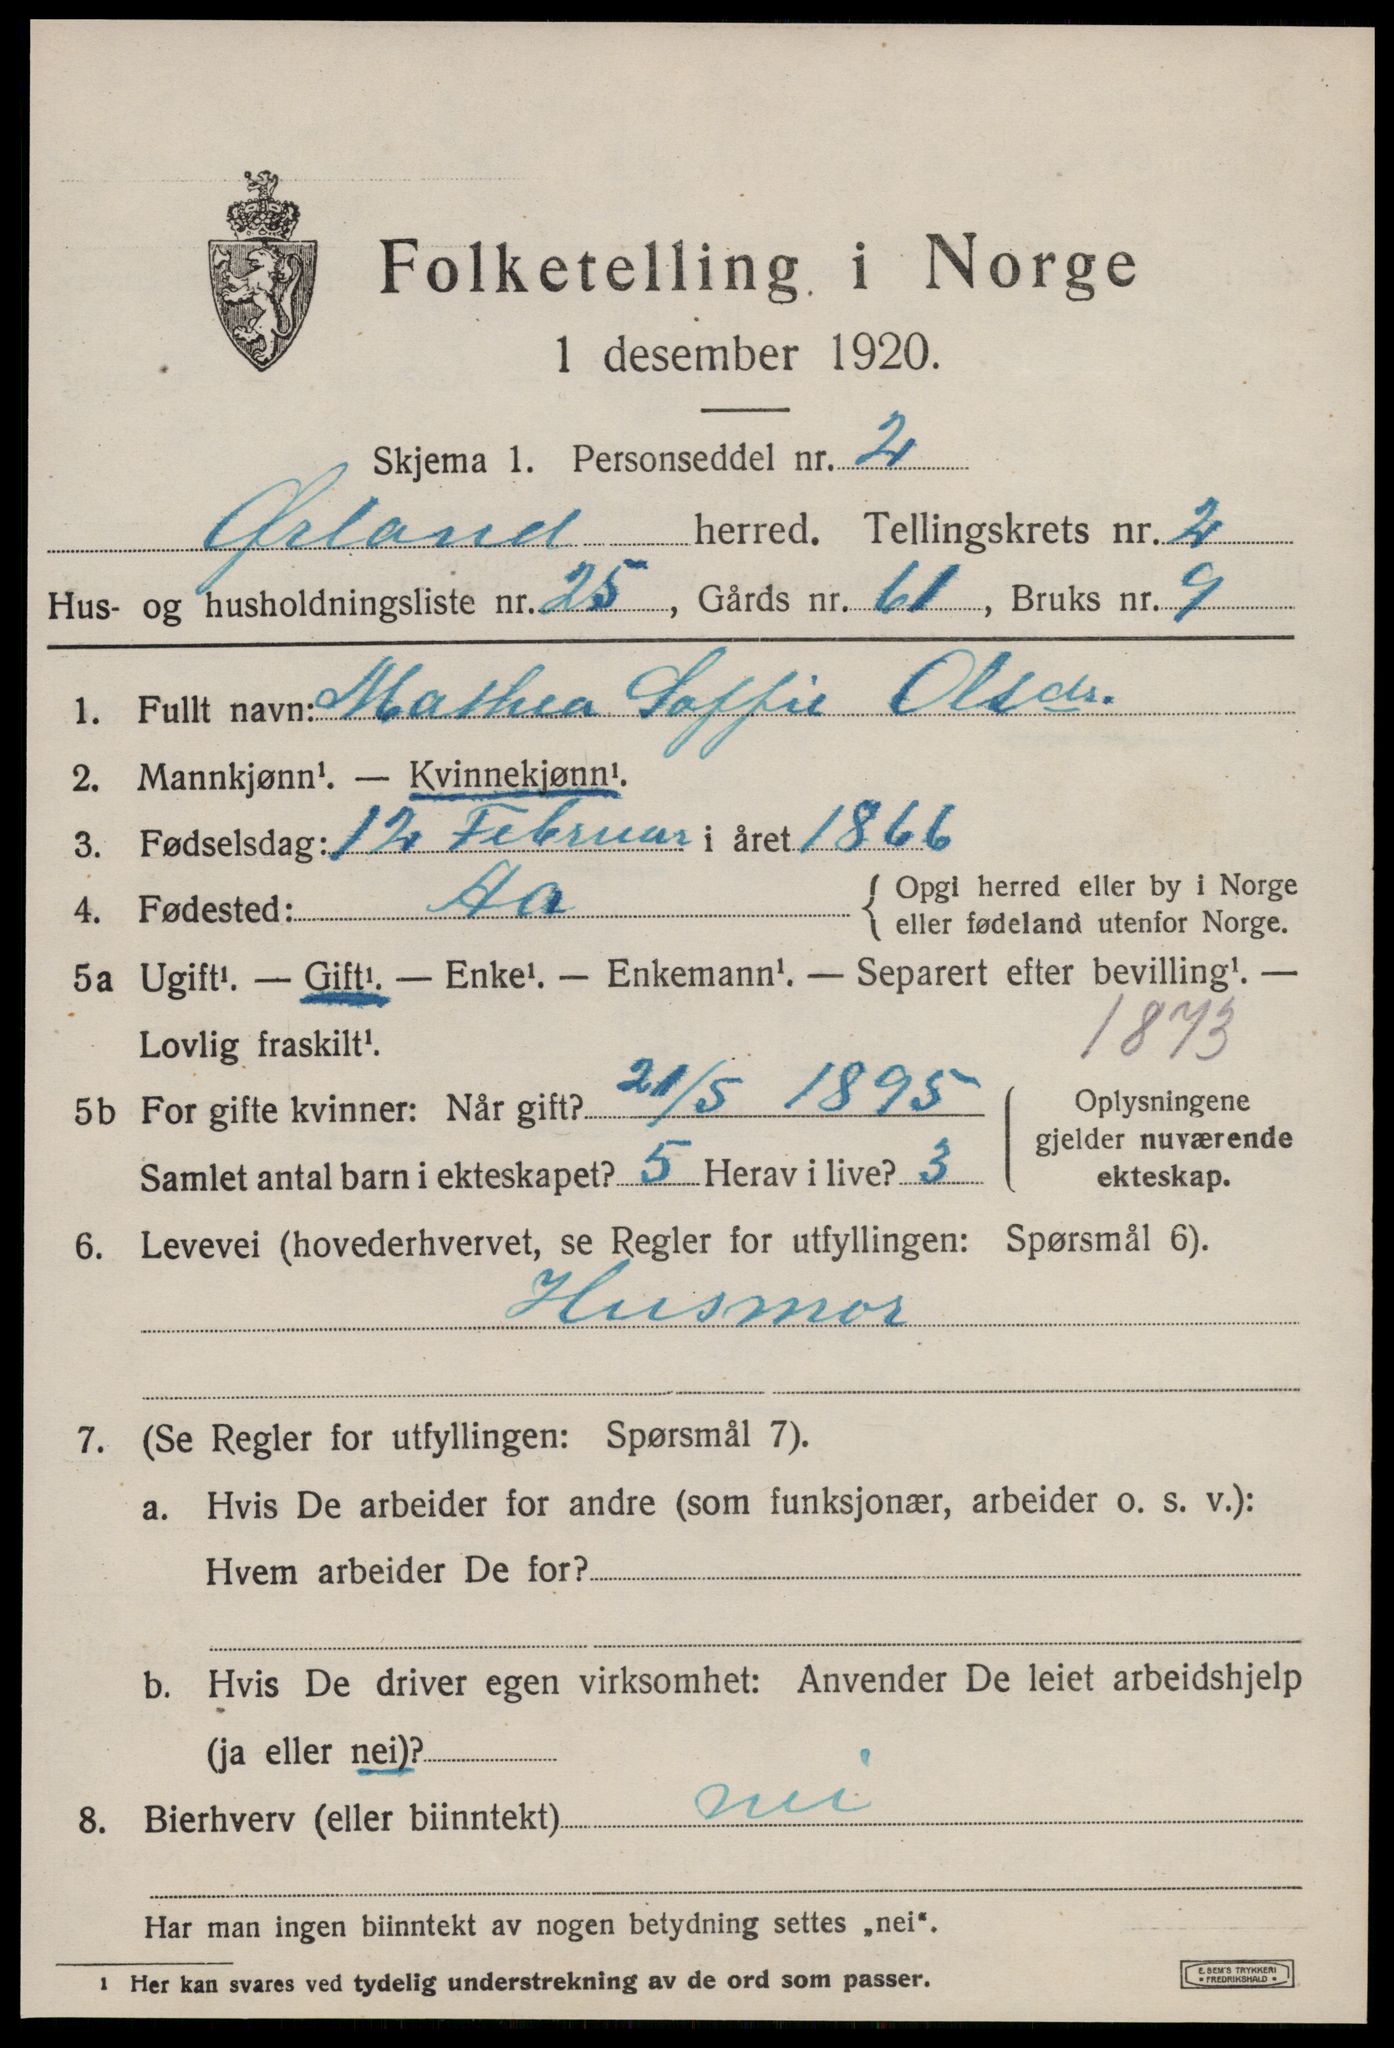 Folketelling i Norge
1 desember 1920.
Skjema 1. Personseddel nr. 2
Ørland herred. Tellingskrets nr. 2
Hus- og husholdningsliste nr. 25, Gårds nr. 61, Bruks nr. 9
1. Fullt navn: Mathea Soffie Olsdr.
2. Mannkjønn¹. — Kvinnekjønn¹.
3. Fødselsdag: 12 Februar i året 1866
4. Fødested: Aa { Opgi herred eller by i Norge
eller fødeland utenfor Norge.
5a Ugift¹. — Gift¹. — Enke¹. — Enkemann¹. — Separert efter bevilling¹. —
Lovlig fraskilt¹. 1873
5b For gifte kvinner: Når gift? 21/5 1895
Samlet antal barn i ekteskapet? 5 Herav i live? 3
Oplysningene
gjelder nuværende
ekteskap.
6. Levevei (hovederhvervet, se Regler for utfyllingen: Spørsmål 6).
Husmor
7. (Se Regler for utfyllingen: Spørsmål 7).
a. Hvis De arbeider for andre (som funksjonær, arbeider o. s. v.):
Hvem arbeider De for?
b. Hvis De driver egen virksomhet: Anvender De leiet arbeidshjelp
(ja eller nei)?
8. Bierhverv (eller biinntekt) nei
Har man ingen biinntekt av nogen betydning settes „nei“.
1 Her kan svares ved tydelig understrekning av de ord som passer.
E. SEM'S TRYKKERI
• FREDRIKSHALD •